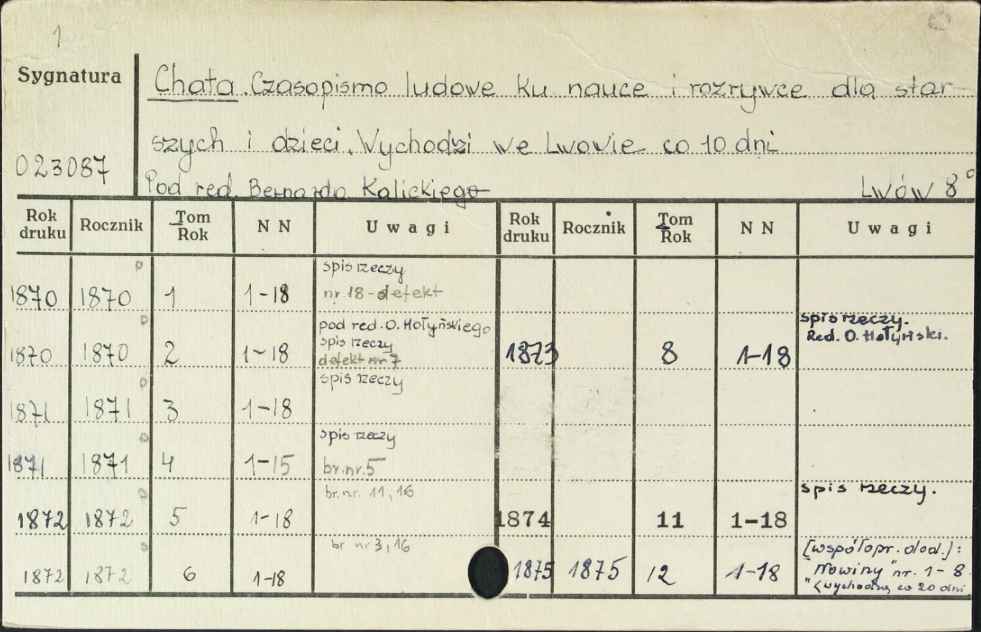 1
Sygnatura
Chata. Czasopismo ludowe ku nauce i rozrywce dla star-
szych i dzieci. Wychodzi we Lwowie co 10 dni
023087
Pod red. Bernarda Kalickiego Lwów 8°
Rok druku Rocznik Tom Rok N N Uwagi Rok druku Rocznik Tom Rok N N Uwagi
1870 1870 1 1-18 spis rzeczy
nr 18 - defekt
1870 1870 2 1-18 pod red. O. Hołyńskiego
spis rzeczy
defekt nr 7
1873 8 1-18 spis rzeczy.
Red. O. Hołyński.
1871 1871 3 1-18 spis rzeczy
1871 1871 4 1-15 spis rzeczy
br. nr. 5
1872 1872 5 1-18 br. nr. 11, 16
1874 11 1-18 spis rzeczy.
1872 1872 6 1-18 br nr 3, 16
1875 1875 12 1-18 [współopr. dod.]:
"Nowiny" nr. 1-8
(wychodzą co 20 dni